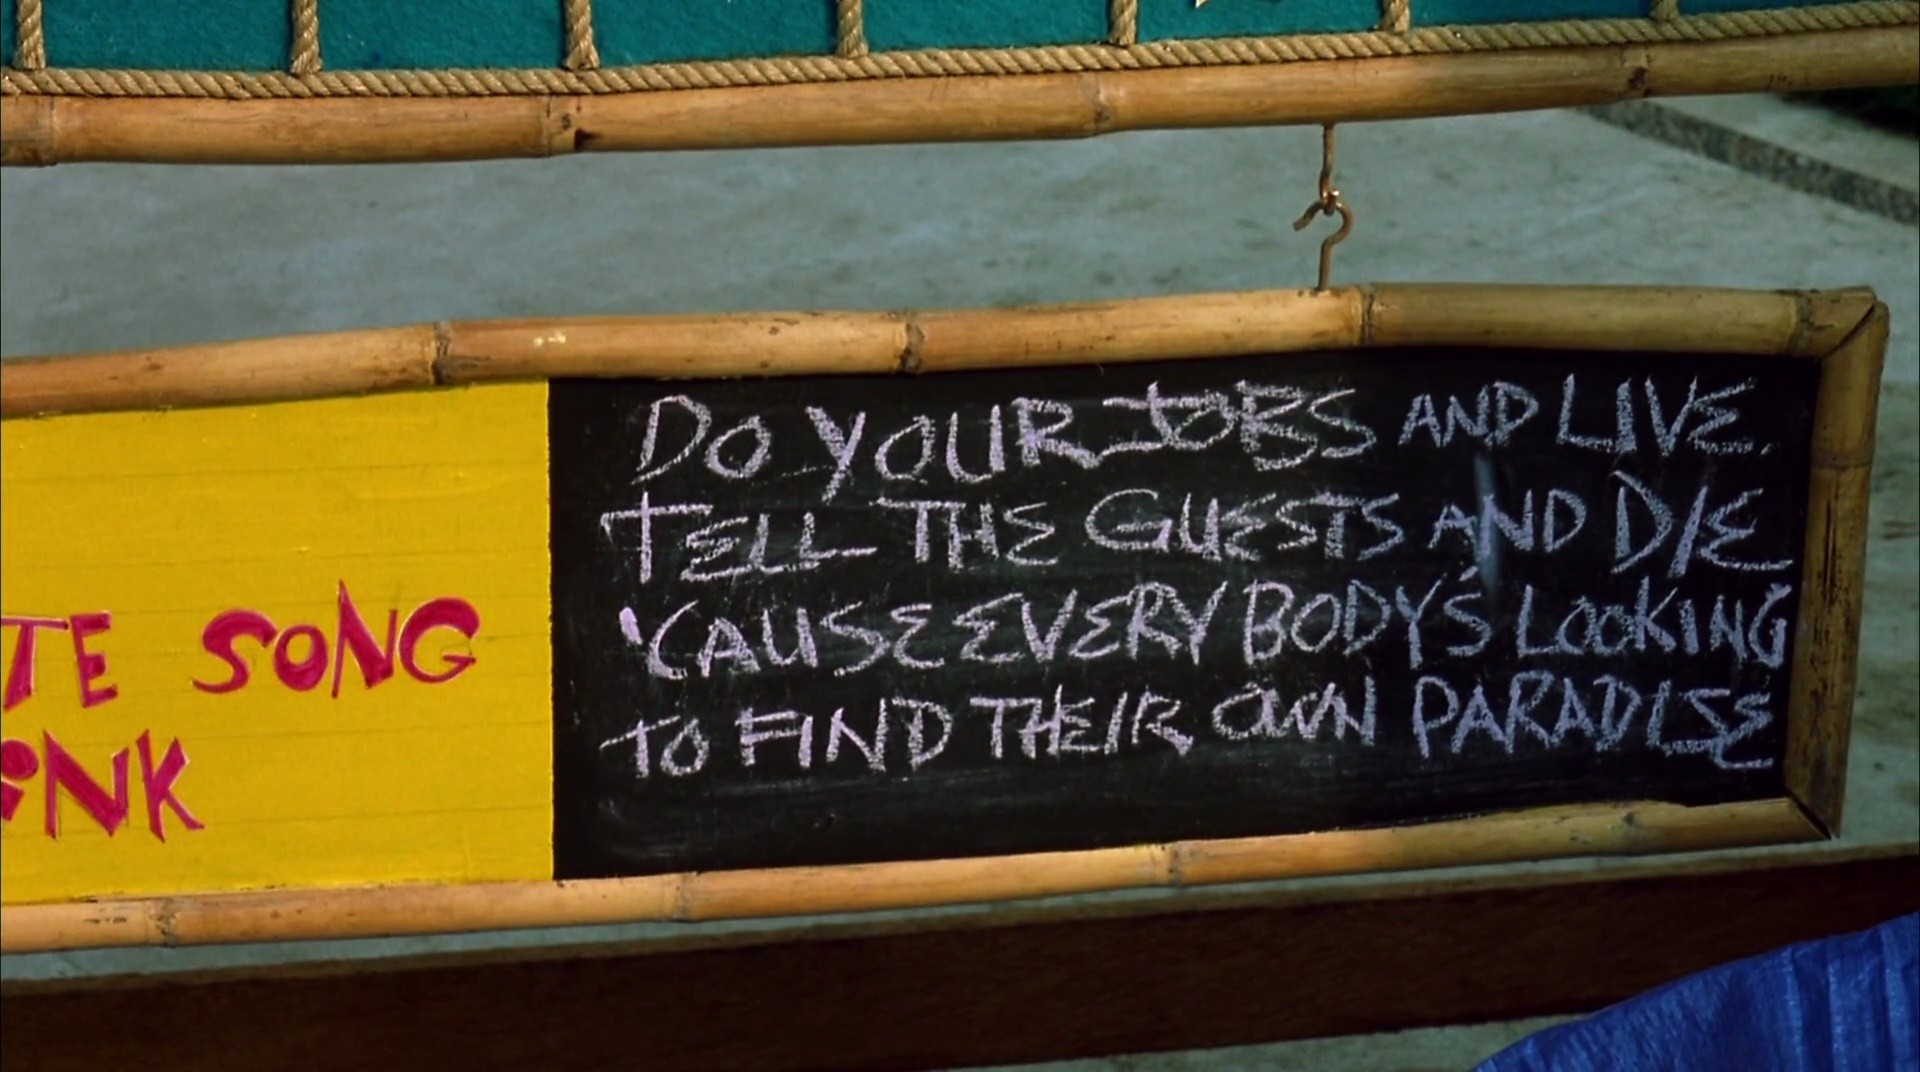 TE SONG
INK
DO YOUR JOBS AND LIVE.
TELL THE GUESTS AND DIE
'CAUSE EVERY BODY'S LOOKING
TO FIND THEIR OWN PARADISE